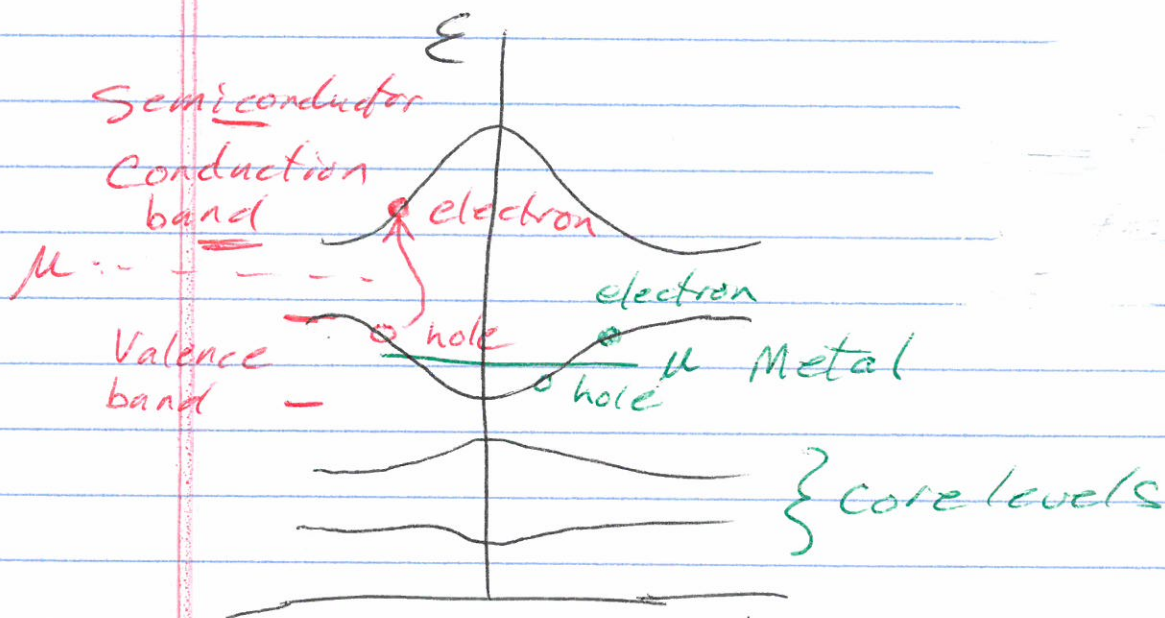 ε
Semiconductor
Conduction
band
electron
μ
electron
hole
Valence
band
μ Metal
hole
Core levels